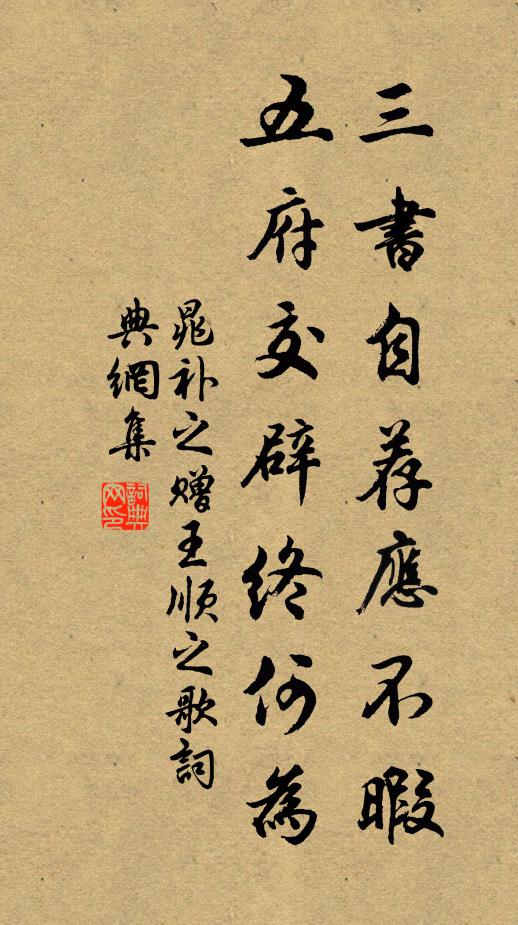 三書自荐應不暇
五府交辟終何為
晁补之赠王顺之歌詞
典網集
詞典
网印